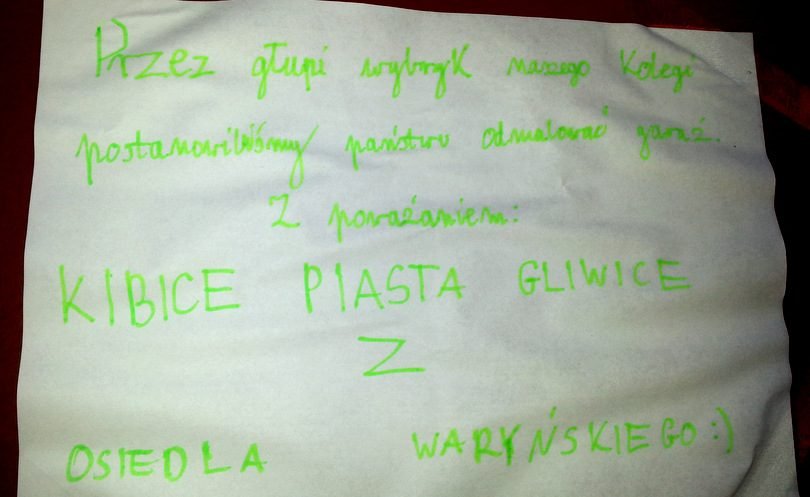 Przez głupi wybryk naszego kolegi
postanowiliśmy państwu odmalować garaż.
Z poważaniem:
KIBICE PIASTA GLIWICE
Z
OSIEDLA WARYŃSKIEGO :)